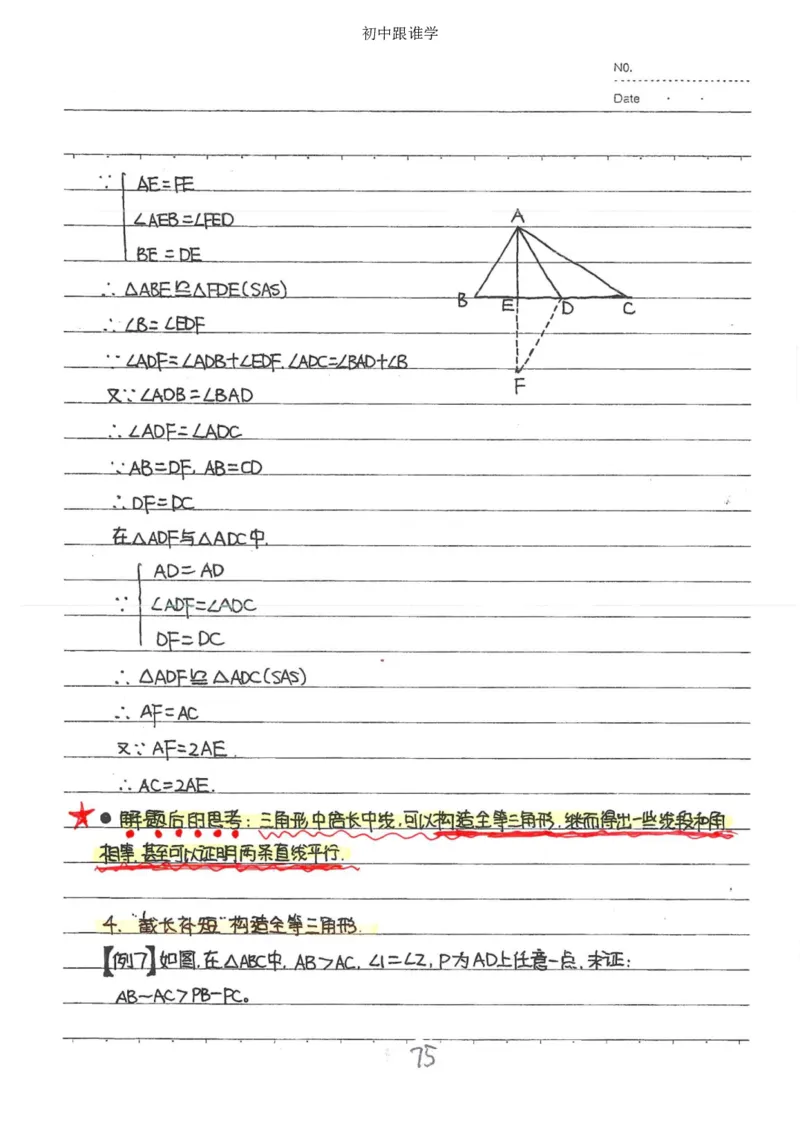 初中跟谁学
NO.
Date
∵ AE=FE
∠AEB=∠FED
BE=DE
∴ △ABE≌△FDE(SAS)
∴ ∠B=∠EDF
∵ ∠ADF=∠ADB+∠EDF, ∠ADC=∠BAD+∠B
又∵∠ADB=∠BAD
∴∠ADF=∠ADC
∵AB=DF, AB=CD
∴DF=DC
在△ADF与△ADC中,
AD=AD
∵ ∠ADF=∠ADC
DF=DC
∴ △ADF≌△ADC(SAS)
∴ AF=AC
又∵ AF=2AE.
∴ AC=2AE.
A
B E D C
F
★ ● 解题后的思考: 三角形中倍长中线,可以构造全等三角形,继而得出一些线段和角
相等,甚至可以证明两条直线平行.
4. "截长补短"构造全等三角形.
【例7】如图,在△ABC中, AB>AC, ∠1=∠2, P为AD上任意一点,求证:
AB-AC>PB-PC。
75